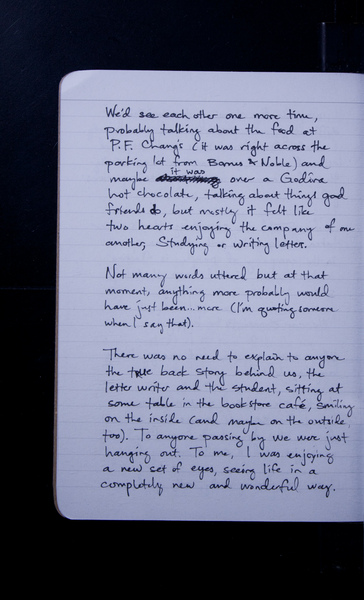 We'd see each other one more time,
probably talking about the food at
P.F. Chang's (it was right across the
parking lot from Barnes & Noble) and
maybe it was over a Godiva
hot chocolate, talking about things good
friends do, but mostly it felt like
two hearts enjoying the company of one
another, studying or writing letter.
Not many words uttered but at that
moment, anything more probably would
have just been... more (I'm quoting someone
when I say that).
There was no need to explain to anyone
the true back story behind us, the
letter writer and the student, sitting at
some table in the bookstore café, smiling
on the inside (and maybe on the outside,
too). To anyone passing by we were just
hanging out. To me, I was enjoying
a new set of eyes, seeing life in a
completely new and wonderful way.